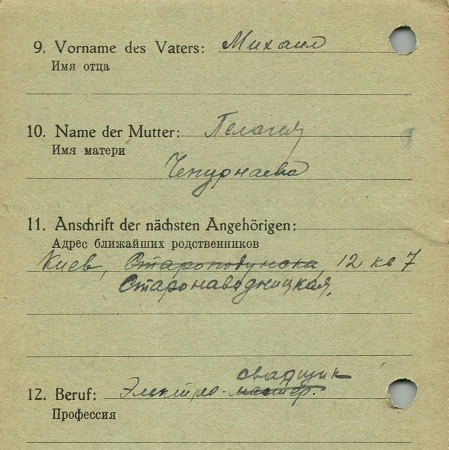 9. Vorname des Vaters: Михаил
Имя отца
10. Name der Mutter: Пелагия
Имя матери
Чепурнаева
11. Anschrift der nächsten Angehörigen:
Адрес ближайших родственников
Киев, 12 кв 7
Старонаводницкая,
сварщик
12. Beruf: Электро-мастер.
Профессия